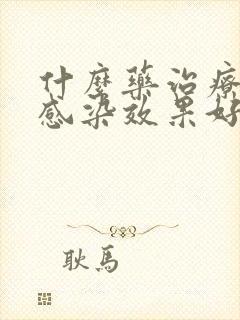 什麼藥治療
感染效果好
耿馬